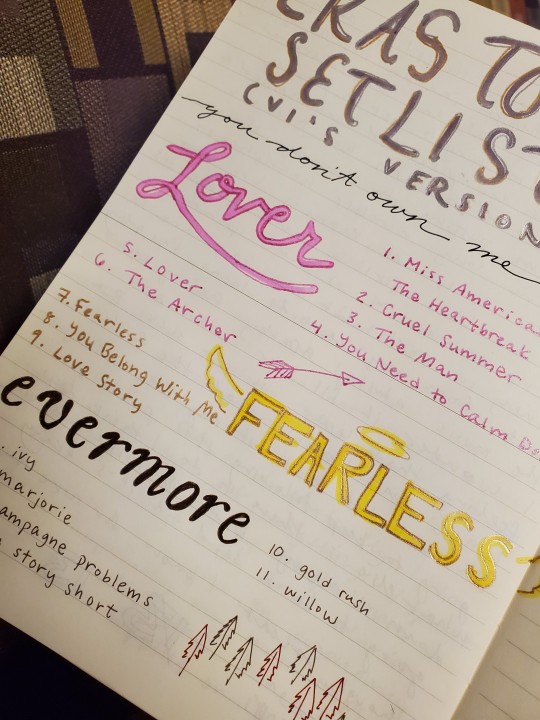 ERAS TO
SETLIST
(VI'S VERSION
you don't own me
Lover
1. Miss America
The Heartbreak
2. Cruel Summer
3. The Man
4. You Need to Calm Do
5. Lover
6. The Archer
7. Fearless
8. You Belong With Me
9. Love Story
FEARLESS
evermore
10. gold rush
11. willow
. ivy
marjorie
ampagne problems
story short